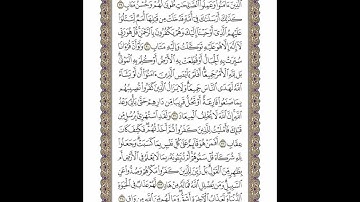 الَّذِينَ ءَامَنُوا وَعَمِلُوا الصَّٰلِحَٰتِ طُوبَىٰ لَهُمْ وَحُسْنُ مَـَٔابٍ ٢٩
كَذَٰلِكَ أَرْسَلْنَٰكَ فِي أُمَّةٍ قَدْ خَلَتْ مِن قَبْلِهَا أُمَمٌ لِّتَتْلُوَا
عَلَيْهِمُ الَّذِي أَوْحَيْنَا إِلَيْكَ وَهُمْ يَكْفُرُونَ بِالرَّحْمَٰنِ قُلْ هُوَ رَبِّي
لَا إِلَٰهَ إِلَّا هُوَ عَلَيْهِ تَوَكَّلْتُ وَإِلَيْهِ مَتَابِ ٣٠ وَلَوْ أَنَّ قُرْءَانًا
سُيِّرَتْ بِهِ الْجِبَالُ أَوْ قُطِّعَتْ بِهِ الْأَرْضُ أَوْ كُلِّمَ بِهِ الْمَوْتَىٰ بَل
لِّلَّهِ الْأَمْرُ جَمِيعًا أَفَلَمْ يَا۟يْـَٔسِ الَّذِينَ ءَامَنُوا أَن لَّوْ يَشَاءُ
اللَّهُ لَهَدَى النَّاسَ جَمِيعًا وَلَا يَزَالُ الَّذِينَ كَفَرُوا تُصِيبُهُم
بِمَا صَنَعُوا قَارِعَةٌ أَوْ تَحُلُّ قَرِيبًا مِّن دَارِهِمْ حَتَّىٰ يَأْتِيَ وَعْدُ
اللَّهِ إِنَّ اللَّهَ لَا يُخْلِفُ الْمِيعَادَ ٣١ وَلَقَدِ اسْتُهْزِئَ بِرُسُلٍ مِّن
قَبْلِكَ فَأَمْلَيْتُ لِلَّذِينَ كَفَرُوا ثُمَّ أَخَذْتُهُمْ فَكَيْفَ كَانَ
عِقَابِ ٣٢ أَفَمَنْ هُوَ قَائِمٌ عَلَىٰ كُلِّ نَفْسٍ بِمَا كَسَبَتْ وَجَعَلُوا
لِلَّهِ شُرَكَاءَ قُلْ سَمُّوهُمْ أَمْ تُنَبِّـُٔونَهُ بِمَا لَا يَعْلَمُ فِي الْأَرْضِ أَم
بِظَٰهِرٍ مِّنَ الْقَوْلِ بَلْ زُيِّنَ لِلَّذِينَ كَفَرُوا مَكْرُهُمْ وَصُدُّوا عَنِ
السَّبِيلِ وَمَن يُضْلِلِ اللَّهُ فَمَا لَهُ مِنْ هَادٍ ٣٣ لَّهُمْ عَذَابٌ فِي الْحَيَوٰةِ
الدُّنْيَا وَلَعَذَابُ الْءَاخِرَةِ أَشَقُّ وَمَا لَهُم مِّنَ اللَّهِ مِن وَاقٍ ٣٤